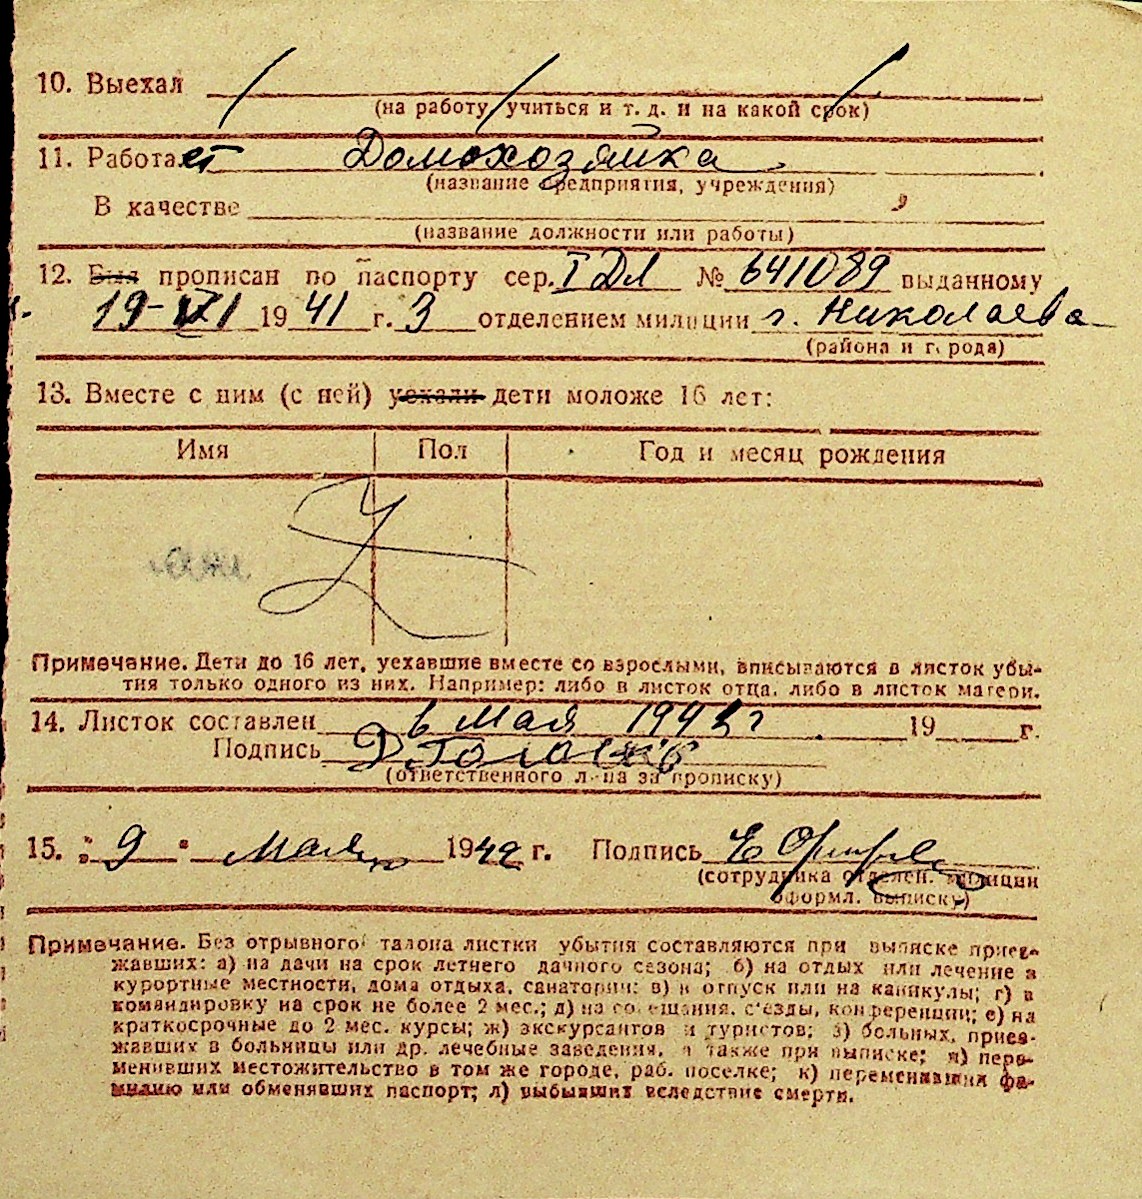 10. Выехал
(на работу, учиться и т. д. и на какой срок)
11. Работает Домохозяйка
(название предприятия, учреждения)
В качестве
(название должности или работы)
12. Был прописан по паспорту сер. I ДЛ № 641089 выданному
19- VI 1941 г. 3 отделением милиции г. Николаева
(района и города)
13. Вместе с ним (с ней) уехали дети моложе 16 лет:
Имя Пол Год и месяц рождения
Примечание. Дети до 16 лет, уехавшие вместе со взрослыми, вписываются в листок убы-
тия только одного из них. Например: либо в листок отца, либо в листок матери.
14. Листок составлен 6 мая 1942 г 19 г.
Подпись
(ответственного лица за прописку)
15. "9" мая 1942 г. Подпись
(сотрудника отделен. милиции
оформл. выписку)
Примечание. Без отрывного талона листки убытия составляются при выписке приез-
жавших: а) на дачи на срок летнего дачного сезона; б) на отдых или лечение в
курортные местности, дома отдыха, санатории; в) в отпуск или на каникулы; г) в
командировку на срок не более 2 мес.; д) на совещания, съезды, конференции; е) на
краткосрочные до 2 мес. курсы; ж) экскурсантов и туристов; з) больных, приез-
жавших в больницы или др. лечебные заведения, а также при выписке; и) пере-
менивших местожительство в том же городе, раб. поселке; к) переменивших фа-
милию или обменявших паспорт; л) выбывших вследствие смерти.